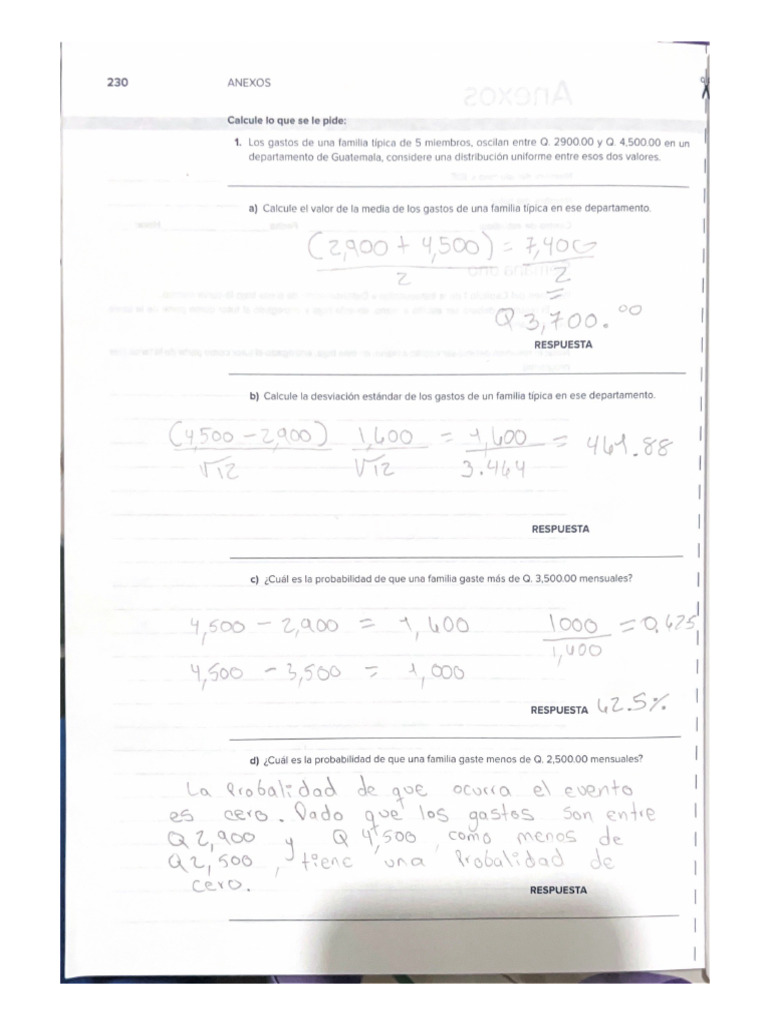 230 ANEXOS
Anexos
Calcule lo que se le pide:
1. Los gastos de una familia típica de 5 miembros, oscilan entre Q. 2900.00 y Q. 4,500.00 en un
departamento de Guatemala, considere una distribución uniforme entre esos dos valores.
a) Calcule el valor de la media de los gastos de una familia típica en ese departamento.
(2,900 + 4,500) = 7,400
2 2
=
Q 3,700.00
RESPUESTA
b) Calcule la desviación estándar de los gastos de un familia típica en ese departamento.
(4,500 - 2,900) 1,600 = 1,600 = 461.88
√12 √12 3.464
RESPUESTA
c) ¿Cuál es la probabilidad de que una familia gaste más de Q. 3,500.00 mensuales?
4,500 - 2,900 = 1,600 1000 = 0.625
1,600
4,500 - 3,500 = 1,000
RESPUESTA 62.5%
d) ¿Cuál es la probabilidad de que una familia gaste menos de Q. 2,500.00 mensuales?
La Probalidad de que ocurra el evento
es cero. Dado que los gastos son entre
Q 2,900 y Q 4,500, como menos de
Q2,500, tiene una Probalidad de
cero.
RESPUESTA